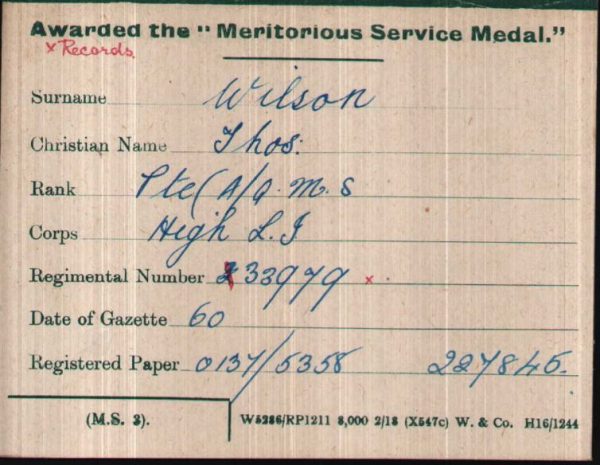 Awarded the "Meritorious Service Medal."
x Records
Surname Wilson
Christian Name Thos:
Rank Pte (A/Q.M.S
Corps High L.I
Regimental Number 33979 x
Date of Gazette 60
Registered Paper 0137/5358 227845.
(M.S. 3). W5286/RP1211 8,000 2/18 (X547c) W. & Co. H16/1244